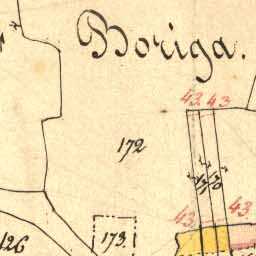 Boriga.
43. 43
172
43. 43
173.
126